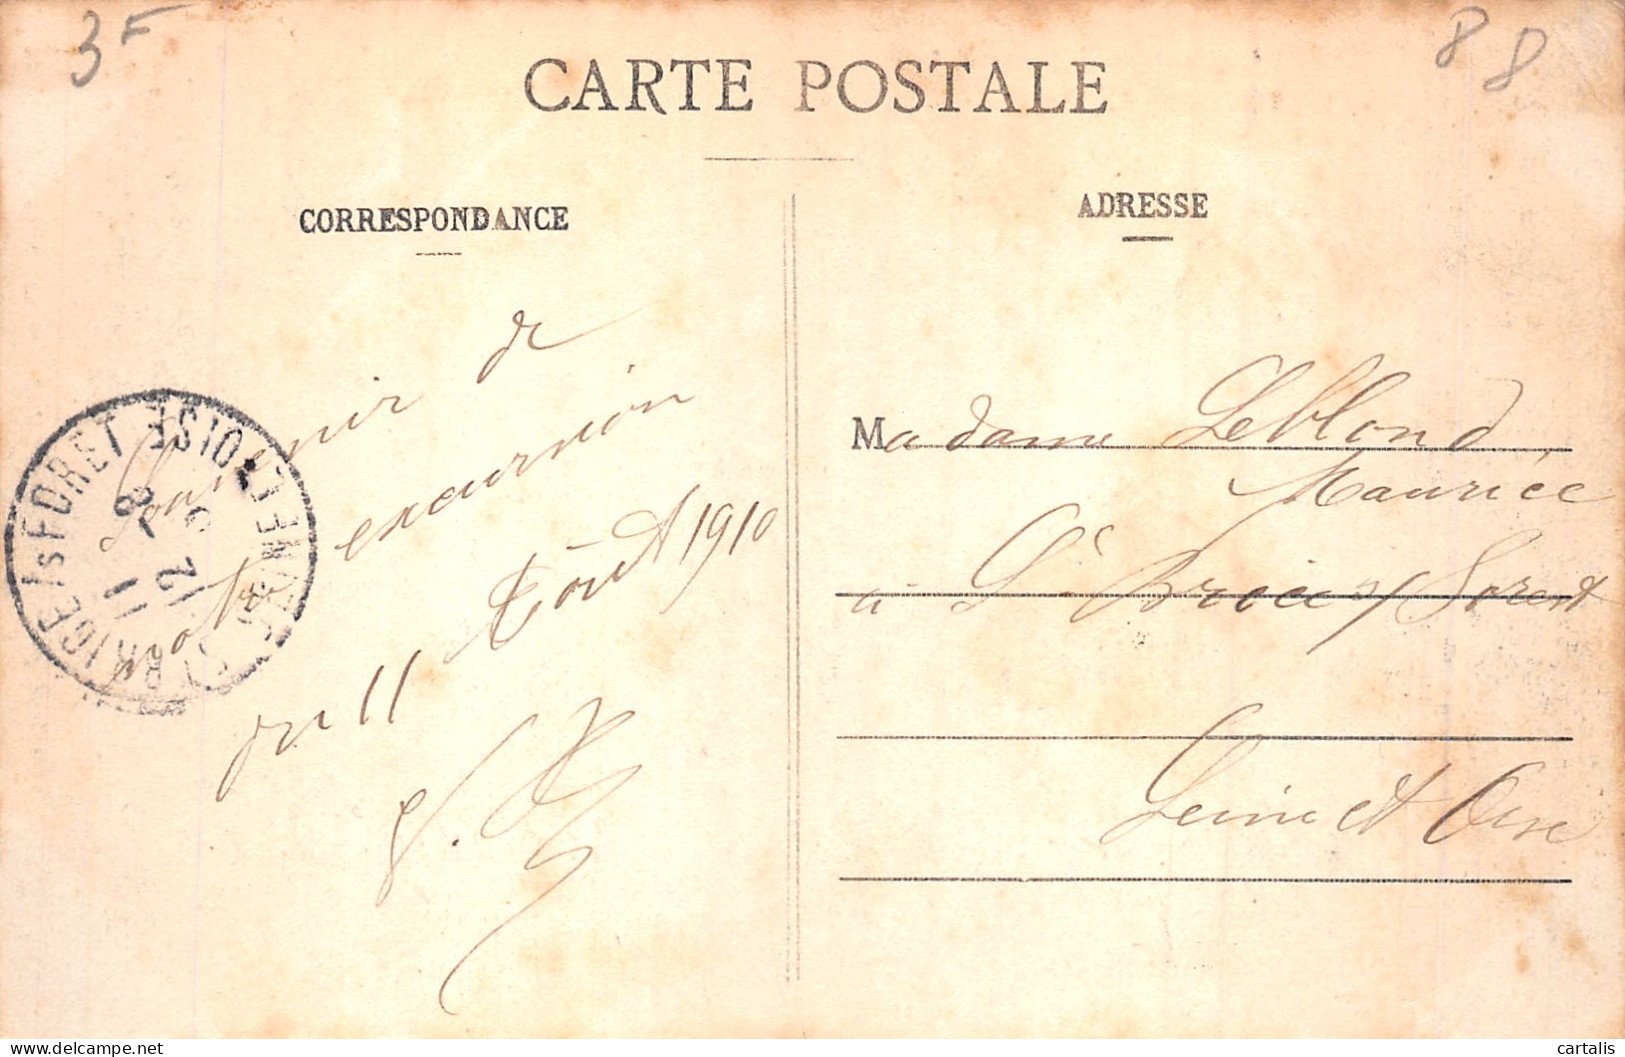 3F
88
CARTE POSTALE
CORRESPONDANCE
ADRESSE
Souvenir de
notre excursion
du 11 Août 1910
Madame Leblond
Maurice
à St Brice s/ Forest
Seine et Oise
ST BRICE Is FORET SEINE ET OISE
11 12
8
cartalis
delcampe.net